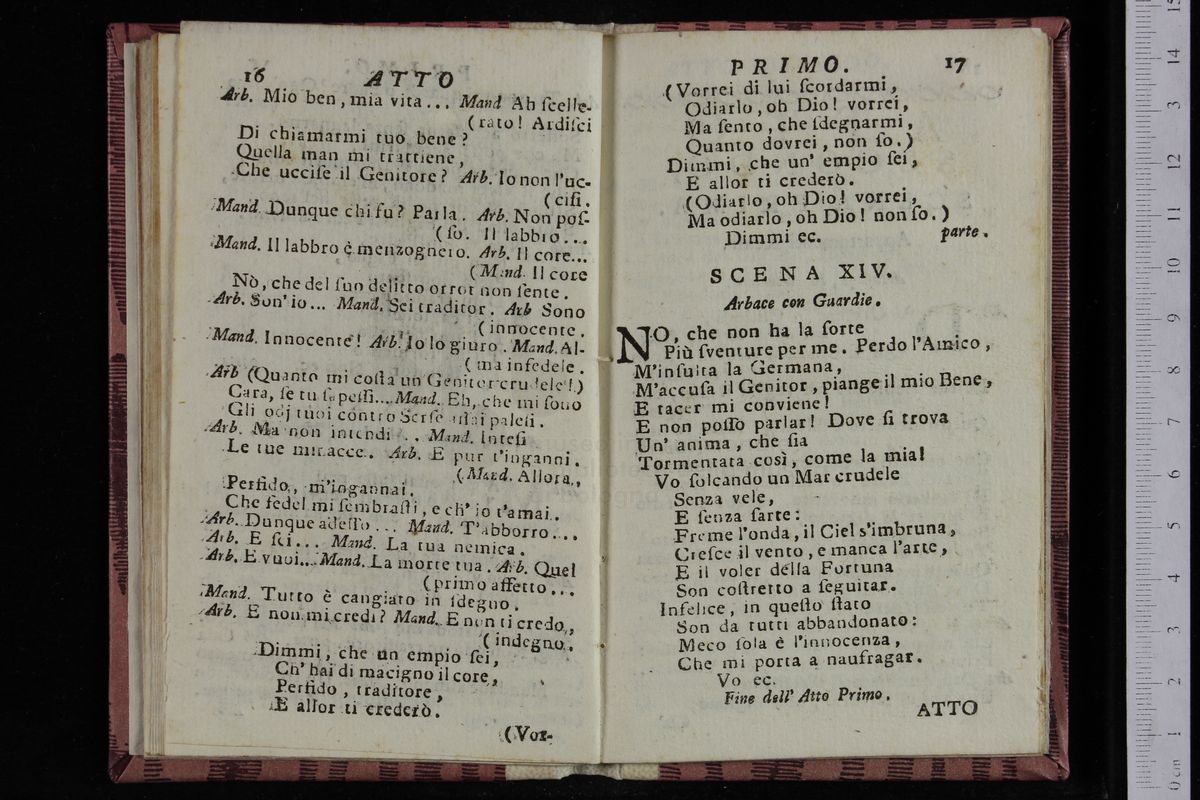 16 ATTO
Arb. Mio ben, mia vita... Mand Ah ſcelle-
(rato! Ardiſci
Di chiamarmi tuo bene?
Quella man mi trattiene,
Che ucciſe il Genitore? Arb. Io non l'uc-
(ciſi.
Mand. Dunque chi fu? Parla. Arb. Non poſ-
(ſo. Il labbro...
Mand. Il labbro è menzognero. Arb. Il core...
(Mand. Il core
Nò, che del ſuo delitto orror non ſente.
Arb. Son' io... Mand. Sei traditor. Arb Sono
(innocente.
Mand. Innocente! Arb. Io lo giuro. Mand. Al-
(ma infedele.
Arb (Quanto mi coſta un Genitor crudele!)
Cara, ſe tu ſapeſſi... Mand. Eh, che mi ſono
Gli odj tuoi contro Serſe aſſai paleſi.
Arb. Ma non intendi... Mand. Inteſi
Le tue minacce. Arb. E pur t'inganni.
(Mand. Allora,
Perfido, m'ingannai.
Che fedel mi ſembraſti, e ch' io t'amai.
Arb. Dunque adeſſo... Mand. T'abborro...
Arb. E ſei... Mand. La tua nemica.
Arb. E vuoi... Mand. La morte tua. Arb. Quel
(primo affetto...
Mand. Tutto è cangiato in ſdegno.
Arb. E non mi credi? Mand. E non ti credo,
(indegno.
Dimmi, che un empio ſei,
Ch' hai di macigno il core,
Perfido, traditore,
E allor ti crederò.
(Vor-
PRIMO. 17
(Vorrei di lui ſcordarmi,
Odiarlo, oh Dio! vorrei,
Ma ſento, che ſdegnarmi,
Quanto dovrei, non ſo.)
Dimmi, che un' empio ſei,
E allor ti crederò.
(Odiarlo, oh Dio! vorrei,
Ma odiarlo, oh Dio! non ſo.)
Dimmi ec. parte.
SCENA XIV.
Arbace con Guardie.
NO, che non ha la ſorte
Più ſventure per me. Perdo l'Amico,
M'inſulta la Germana,
M'accuſa il Genitor, piange il mio Bene,
E tacer mi conviene!
E non poſſo parlar! Dove ſi trova
Un' anima, che ſia
Tormentata così, come la mia!
Vo ſolcando un Mar crudele
Senza vele,
E ſenza ſarte:
Freme l'onda, il Ciel s'imbruna,
Creſce il vento, e manca l'arte,
E il voler délla Fortuna
Son coſtretto a ſeguitar.
Infelice, in queſto ſtato
Son da tutti abbandonato:
Meco ſola è l'innocenza,
Che mi porta a naufragar.
Vo ec.
Fine dell' Atto Primo.
ATTO